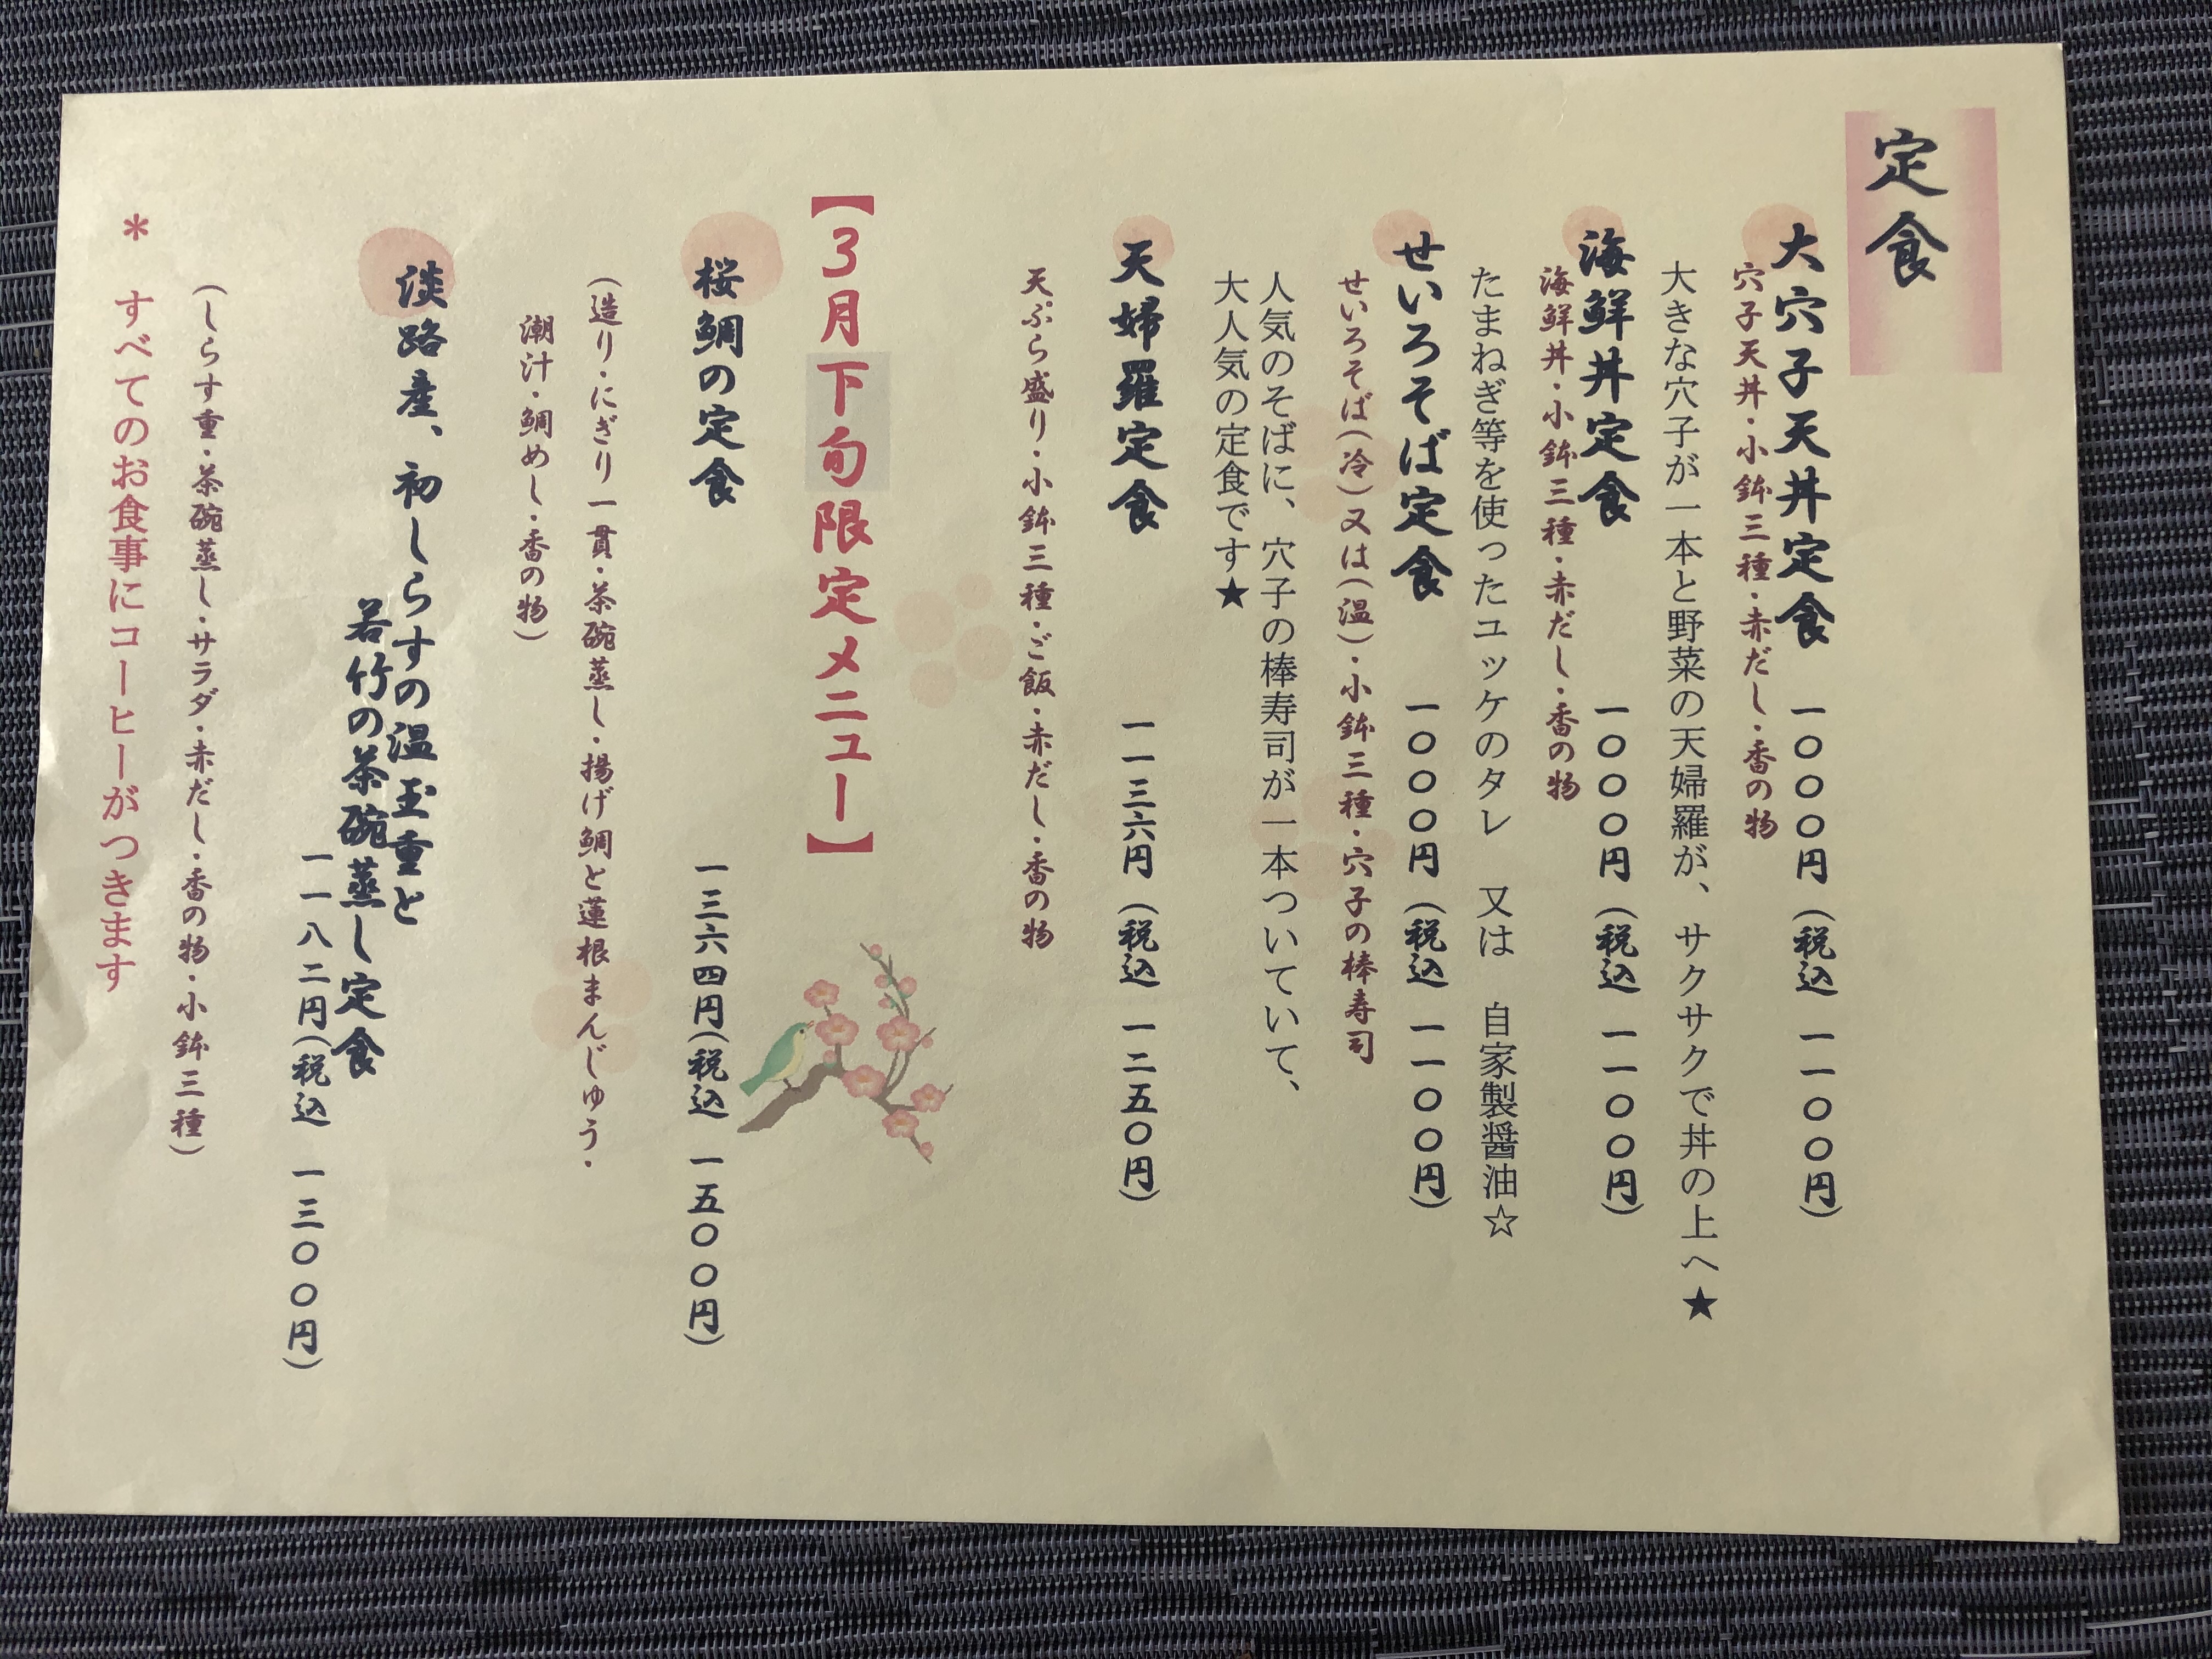 定食
大穴子天丼定食 一〇〇〇円(税込 一一〇〇円)
穴子天丼・小鉢三種・赤だし・香の物
大きな穴子が一本と野菜の天婦羅が、サクサクで丼の上へ★
海鮮丼定食 一〇〇〇円(税込 一一〇〇円)
海鮮丼・小鉢三種・赤だし・香の物
たまねぎ等を使ったユッケのタレ 又は 自家製醤油☆
せいろそば定食 一〇〇〇円(税込 一一〇〇円)
せいろそば(冷)又は(温)・小鉢三種・穴子の棒寿司
人気のそばに、穴子の棒寿司が一本ついていて、
大人気の定食です★
天婦羅定食 一一三六円(税込 一二五〇円)
天ぷら盛り・小鉢三種・ご飯・赤だし・香の物
【3月下旬限定メニュー】
桜鯛の定食 一三六四円(税込 一五〇〇円)
(造り・にぎり一貫・茶碗蒸し・揚げ鯛と蓮根まんじゅう・
潮汁・鯛めし・香の物)
淡路産、初しらすの温玉重と
若竹の茶碗蒸し定食
一一八二円(税込 一三〇〇円)
(しらす重・茶碗蒸し・サラダ・赤だし・香の物・小鉢三種)
＊ すべてのお食事にコーヒーがつきます